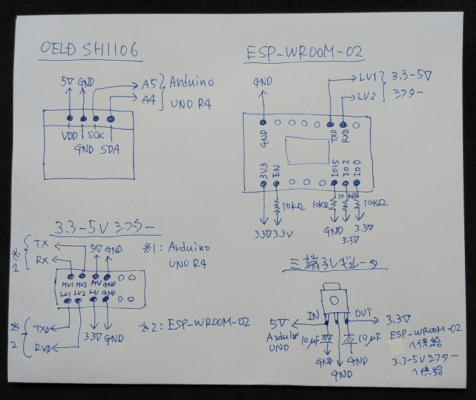 OELD SH1106
5V GND
A5 Arduino
A4 UNO R4
VDD SCK
GND SDA
ESP-WROOM-02
GND
LV1 3.3-5V
LV2 シフター
GND TXD RXD
3V3 EN IO15 IO2 IO0
10KΩ 10KΩ 10KΩ
3.3V 3.3V GND 3.3V 3.3V
3.3-5Vシフター
※1 TX RX 5V GND
※1: Arduino
UNO R4
HV1 HV2 HV GND
LV1 LV2 LV GND
※2 TXD RXD 3.3V GND
※2: ESP-WROOM-02
三端子レギュレータ
IN OUT
5V 3.3V
Arduino
UNO
10μF 10μF
GND GND GND
ESP-WROOM-02
へ供給
3.3-5Vシフター
へ供給